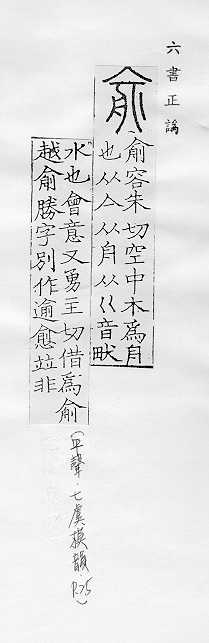 六書正譌
俞
俞容朱切空中木為舟
也从亼从舟从巜音畎
水也會意又勇主切借為俞
越俞勝字別作逾愈竝非
(平聲.七虞模韻.P.25)